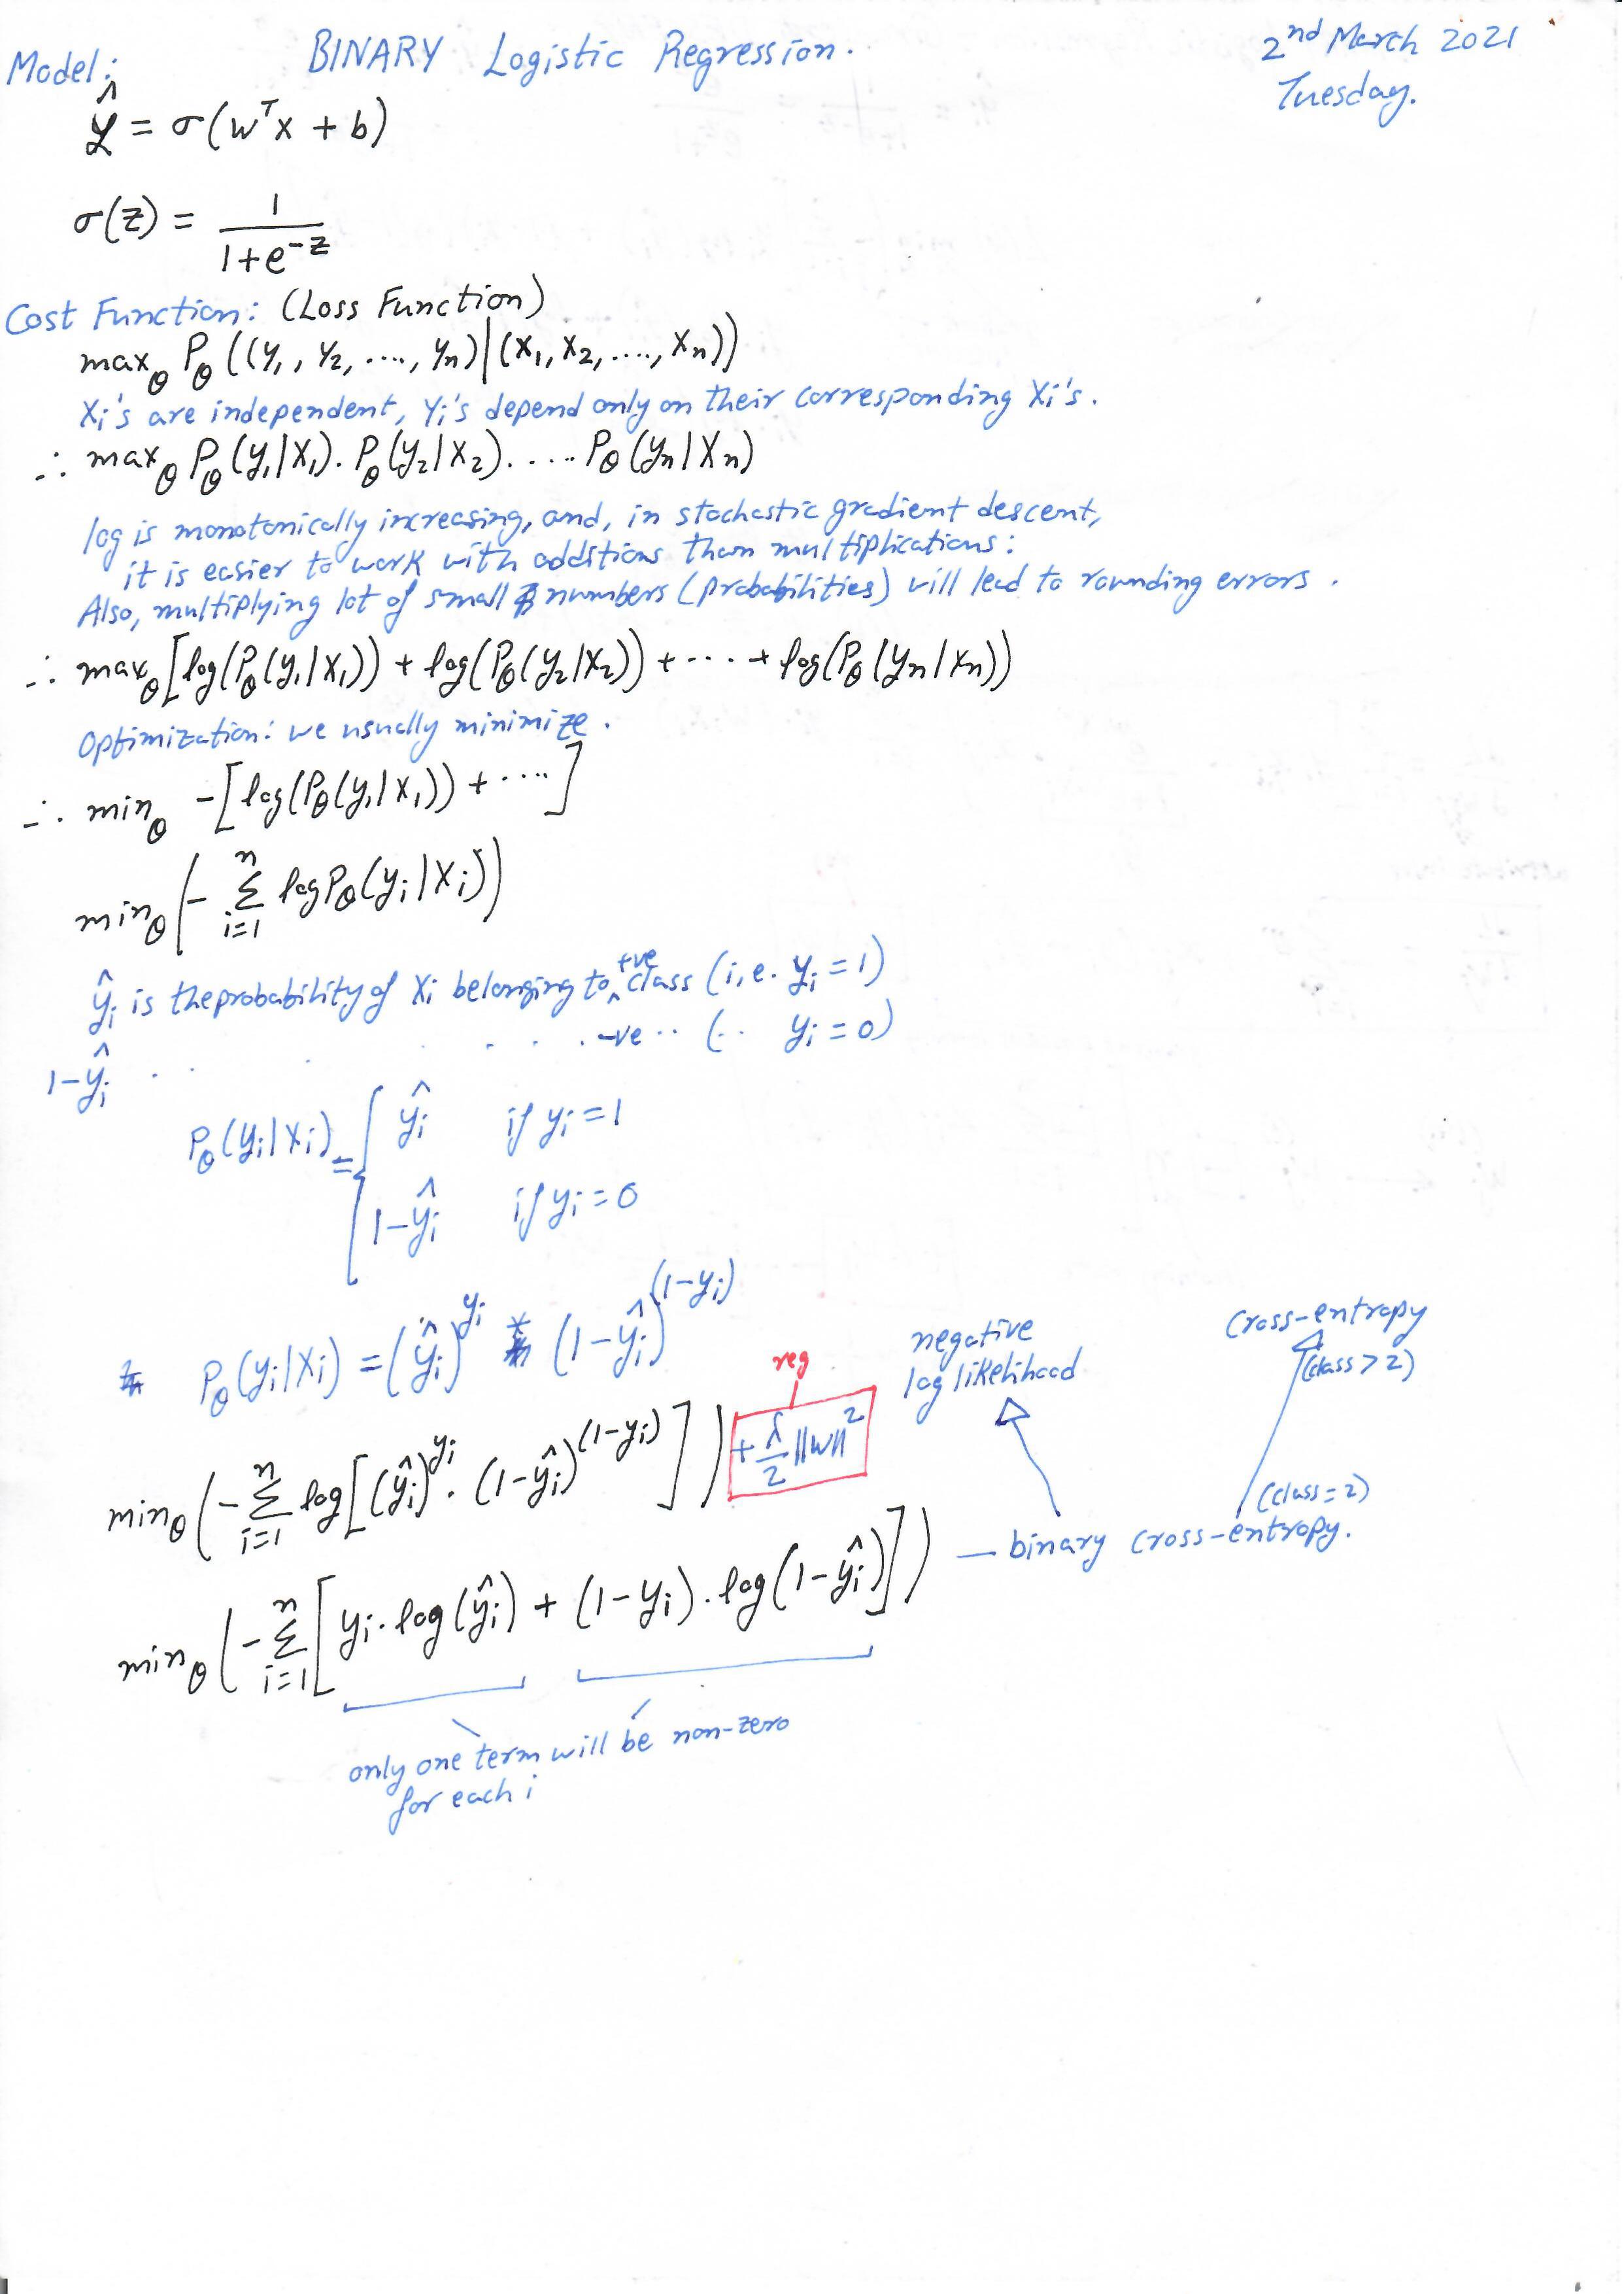 BINARY Logistic Regression.
2nd March 2021
Tuesday.
Model:
ŷ = σ(wᵀx + b)
σ(z) = 1 / (1+e^-z)
Cost Function: (Loss Function)
max_θ P_θ((y₁, y₂, ...., yₙ)|(x₁, x₂, ...., xₙ))
Xi's are independent, yi's depend only on their corresponding Xi's.
∴ max_θ P_θ(y₁|X₁). P_θ(y₂|X₂). .... P_θ(yₙ|Xₙ)
log is monotonically increasing, and, in stochastic gradient descent,
it is easier to work with additions than multiplications:
Also, multiplying lot of small numbers (probabilities) will lead to rounding errors.
∴ max_θ[log(P_θ(y₁|X₁)) + log(P_θ(y₂|X₂)) + .... + log(P_θ(yₙ|xₙ))
Optimization: we usually minimize.
∴ min_θ -[log(P_θ(y₁|X₁)) + ....]
min_θ(- Σ_{i=1}^{n} log P_θ(yᵢ|Xᵢ))
ŷᵢ is the probability of Xi belonging to +ve class (i.e. yᵢ = 1)
1-ŷᵢ . . . . . . -ve .. (.. yᵢ = 0)
P_θ(yᵢ|Xᵢ) = { ŷᵢ if yᵢ = 1
1-ŷᵢ if yᵢ = 0
P_θ(yᵢ|Xᵢ) = (ŷᵢ)^yᵢ * (1-ŷᵢ)^(1-yᵢ)
negative
log likelihood
cross-entropy
(class > 2)
reg
min_θ(- Σ_{i=1}^{n} log[(ŷᵢ)^yᵢ . (1-ŷᵢ)^(1-yᵢ)]) + λ/2 ||w||²
(class = 2)
min_θ(- Σ_{i=1}^{n} [yᵢ.log(ŷᵢ) + (1-yᵢ).log(1-ŷᵢ)]) — binary cross-entropy.
only one term will be non-zero
for each i